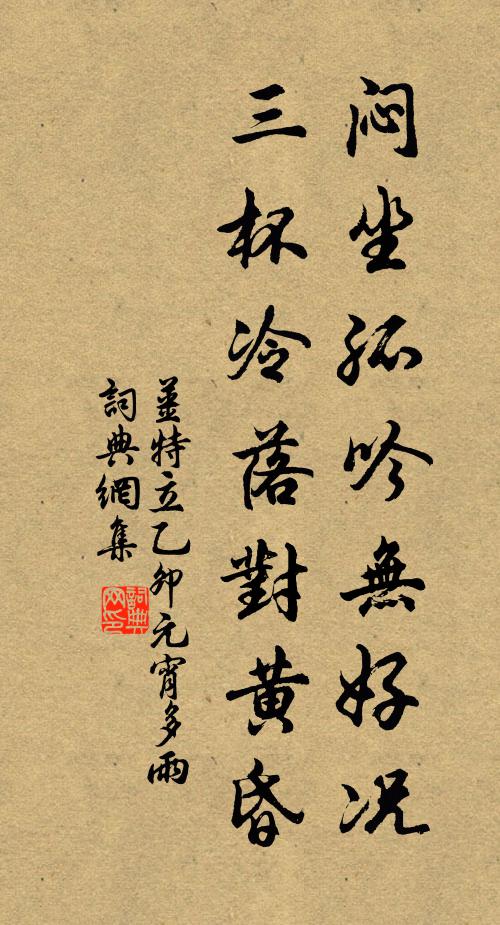 闷坐孤吟無好况
三杯冷落對黄昏
姜特立乙卯元宵多雨
詞典網集
詞典网印